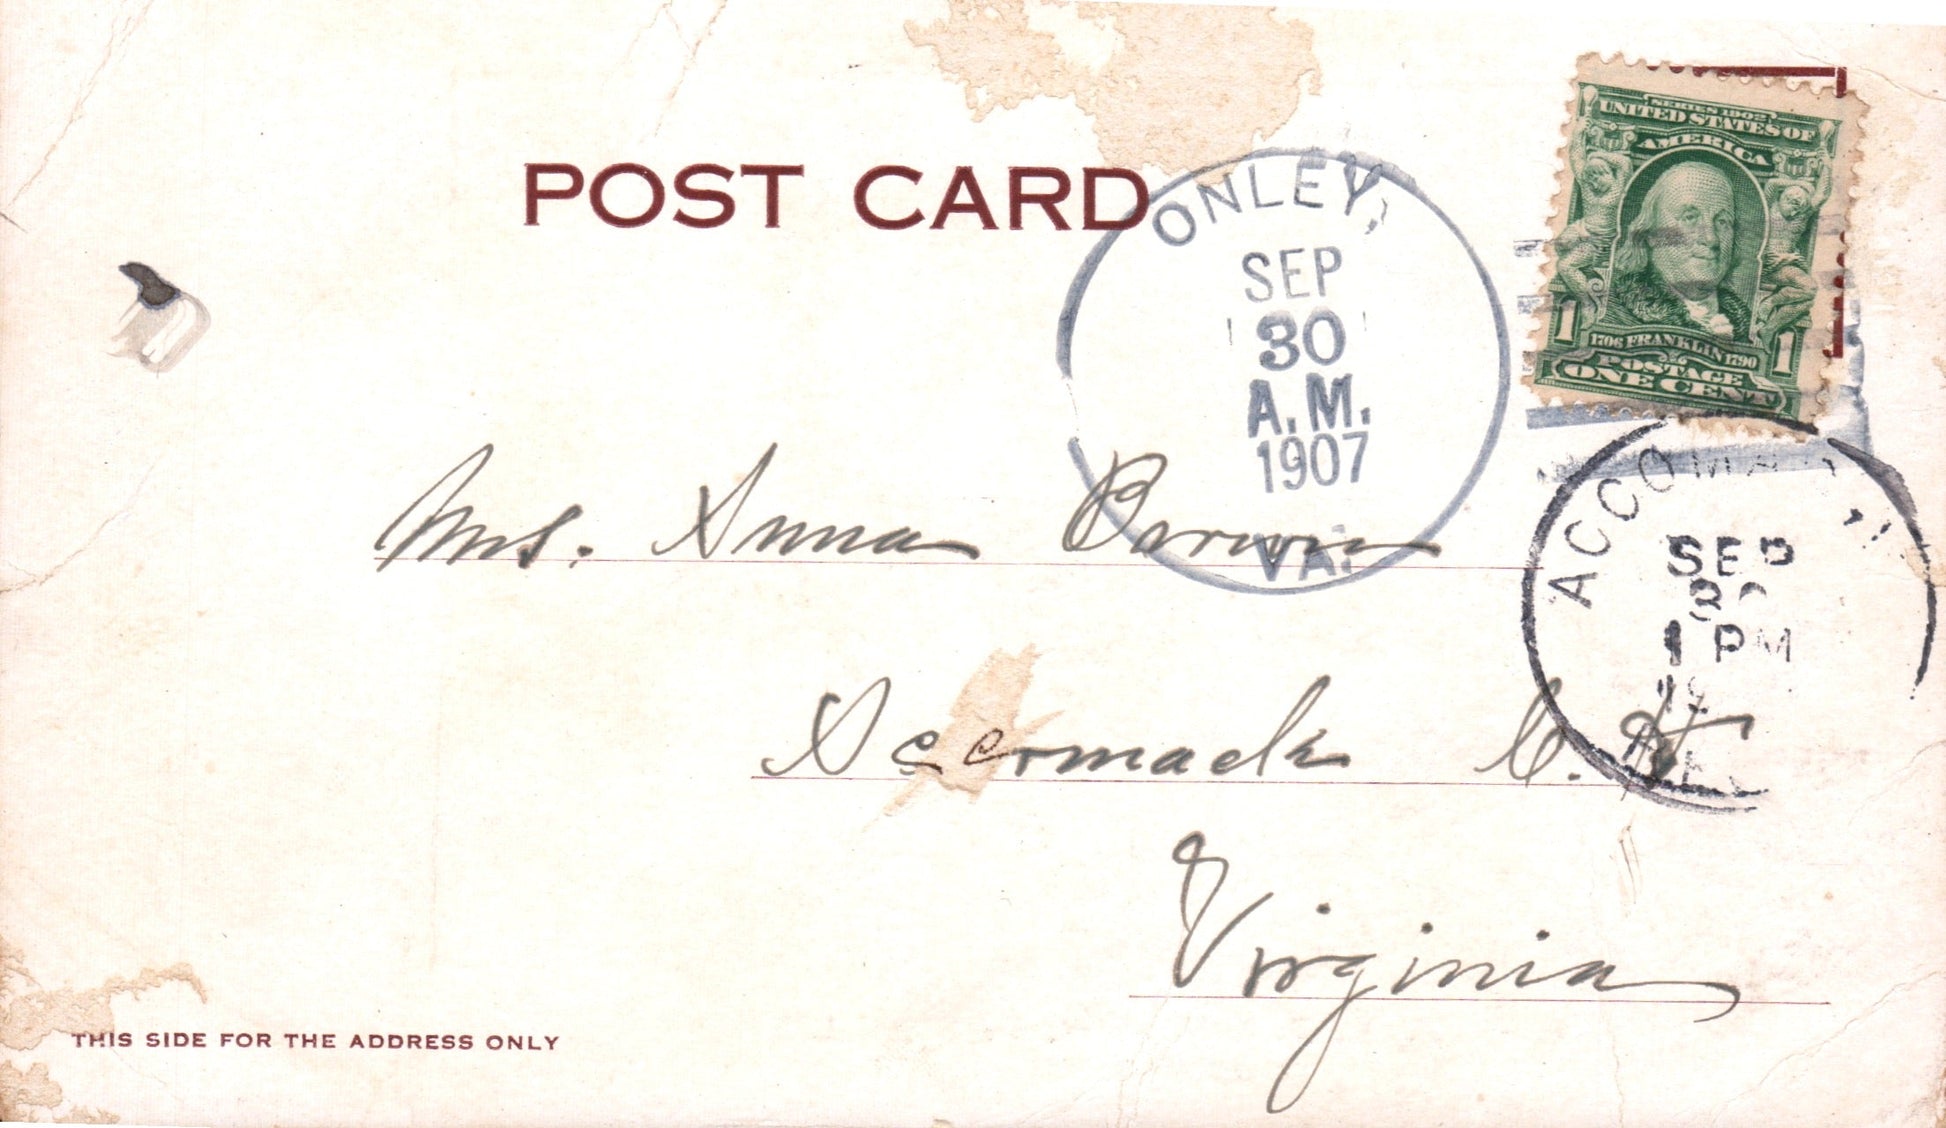 POST CARD
ONLEY,
SEP
30
A.M.
1907
VA.
SERIES 1902
UNITED STATES OF
AMERICA
1 1
1706 FRANKLIN 1790
POSTAGE
ONE CENT
ACCOMA
SEP
30
1 PM
19
Mrs. Anna
Accomack C. H.
Virginia
THIS SIDE FOR THE ADDRESS ONLY